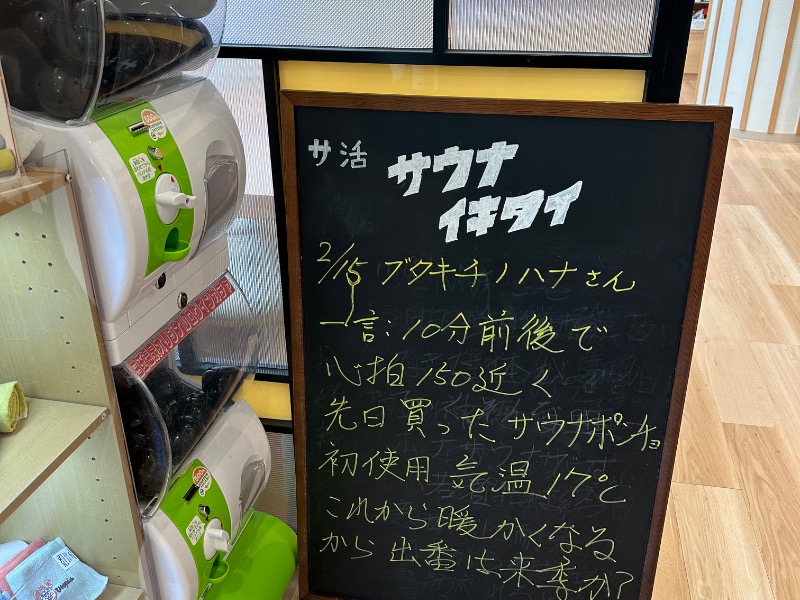 サ活
サウナ
イキタイ
2/15 ブタキチノハナさん
一言:10分前後で
心拍150近く
先日買ったサウナポンチョ
初使用 気温17℃
これから暖かくなる
から出番は来季か?